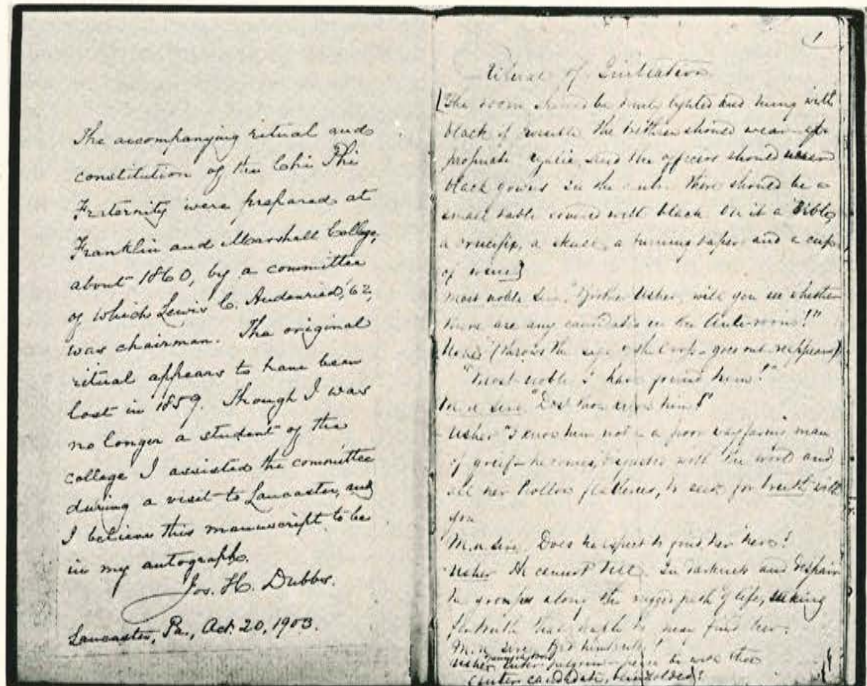 The accompanying ritual and
constitution of the Chi Phi
Fraternity were prepared at
Franklin and Marshall College,
about 1860, by a committee
of which Lewis C. Audenried, '62,
was chairman. The original
ritual appears to have been
lost in 1859. Though I was
no longer a student of the
college I assisted the committee
during a visit to Lancaster, and
I believe this manuscript to be
in my autograph.
Jos. H. Dubbs.
Lancaster, Pa., Oct. 20, 1903.
1
Ritual of Initiation
The room should be lighted and hung with
black if possible the brethren should wear ap-
propriate regalia, and the officers should wear
black gowns In the center there should be a
small table covered with black On it a Bible,
a crucifix, a skull, a burning taper and a cup
of wine]
Most noble Sire, "Brother Usher, will you see whether
there are any candidates in the Anteroom?"
Usher (throws the sign at the door - goes out - reappears)
"Most noble, I have found him!"
M. n. Sire "Dost thou know him?"
Usher "I know him not - a poor wayfaring man
of grief - he comes, disgusted with the world and
all her hollow flatteries, to seek for truth with
you
M. n. Sire, Does he expect to find her here?
Usher He cannot tell. In darkness and despair
he along the rugged path of life, seeking
for truth that he find her.
M. n. Sire, Bid him
Usher peace be with thee
(enter candidate, blindfolded)